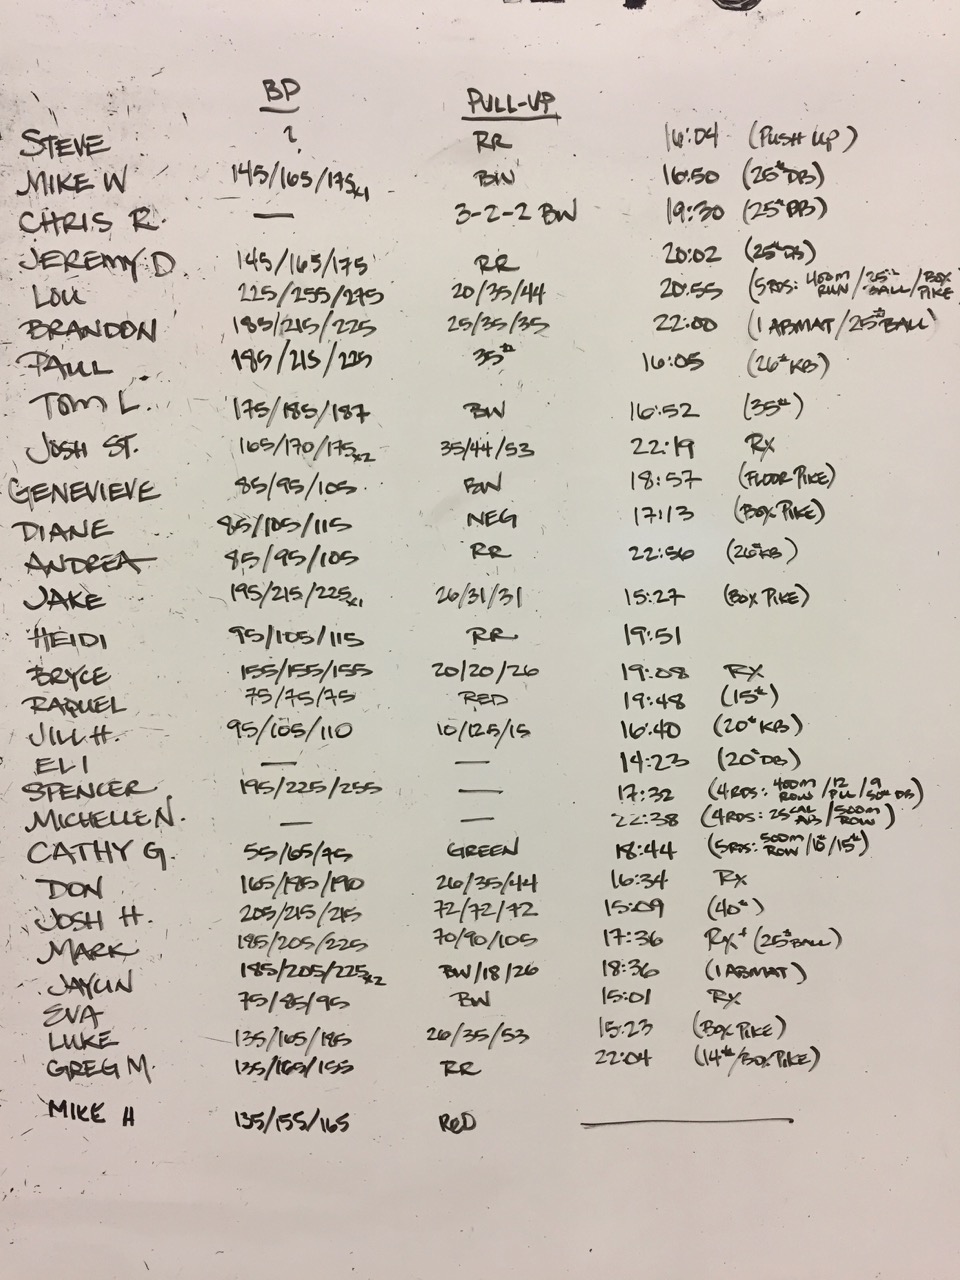 BP PULL-UP
STEVE ? RR 16:04 (PUSH UP)
MIKE W 145/165/175x1 BW 16:50 (25# DB)
CHRIS R. — 3-2-2 BW 19:30 (25# DB)
JEREMY D 145/165/175 RR 20:02 (25# DB)
LOU 225/255/275 20/35/44 20:55 (5 RDS: 400M RUN/25# BALL/BOX PIKE
BRANDON 185/215/225 25/35/35 22:00 (1 ABMAT/25# BALL)
PAUL 185/215/225 35# 16:05 (26# KB)
TOM L. 175/185/187 BW 16:52 (35#)
JOSH ST. 165/170/175x2 35/44/53 22:19 RX
GENEVIEVE 85/95/105 BW 18:57 (FLOOR PIKE)
DIANE 85/105/115 NEG 17:13 (BOX PIKE)
ANDREA 85/95/105 RR 22:56 (26# KB)
JAKE 195/215/225x1 26/31/31 15:27 (BOX PIKE)
HEIDI 95/105/115 RR 19:51
BRYCE 155/155/155 20/20/26 19:08 RX
RAQUEL 75/75/75 RED 19:48 (15#)
JILL H. 95/105/110 10/12.5/15 16:40 (20# KB)
ELI — — 14:23 (20# DB)
SPENCER 195/225/255 — 17:32 (4 RDS: 400M ROW/12 PU/9 50# DB)
MICHELLE N. — — 22:38 (4 RDS: 25 CAL AB/500M ROW)
CATHY G. 55/65/75 GREEN 18:44 (5 RDS: 500M ROW/10#/15#)
DON 165/185/190 26/35/44 16:34 RX
JOSH H. 205/215/215 72/72/72 15:09 (40#)
MARK 185/205/225 70/90/105 17:36 RX+ (25# BALL)
JAYLIN 185/205/225x2 BW/18/26 18:36 (1 ABMAT)
EVA 75/85/95 BW 15:01 RX
LUKE 135/165/185 26/35/53 15:23 (BOX PIKE)
GREG M. 135/165/155 RR 22:04 (14#/BOX PIKE)
MIKE H 135/155/165 RED —